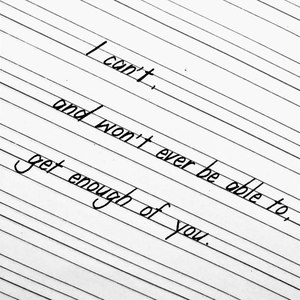 I can't,
and won't ever be able to,
get enough of you.